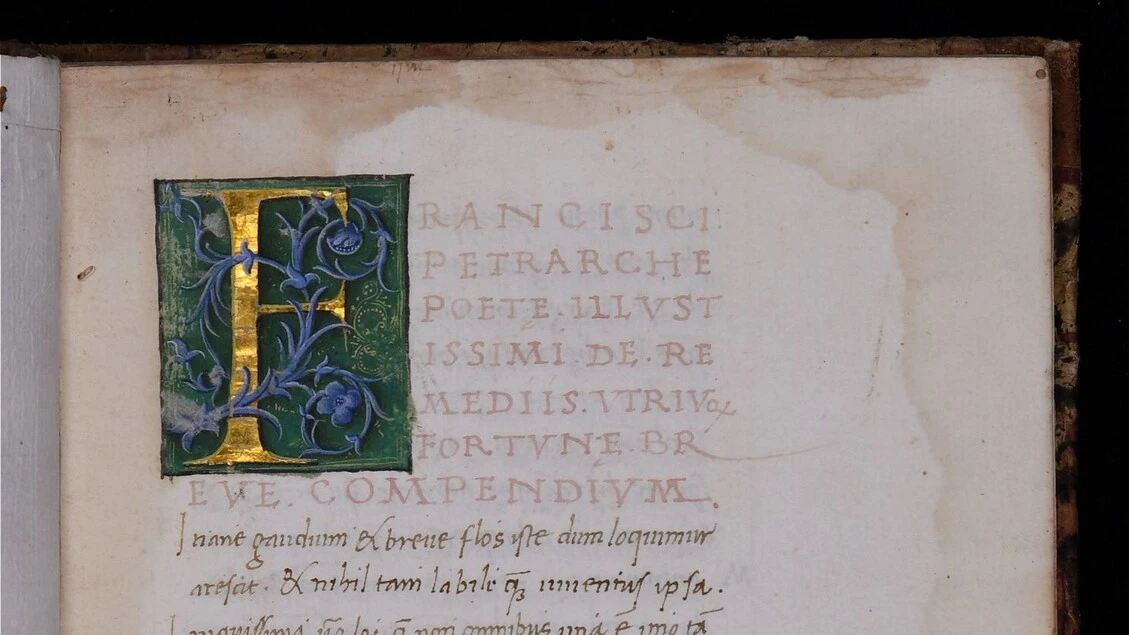 FRANCISCI
PETRARCHE
POETE. ILLVST
ISSIMI. DE. RE
MEDIIS. VTRIVꝙ
FORTVNE. BR
EVE. COMPENDIVM.
Inane gaudium & breue flos iste dum loquimur
arescit. & nihil tam labile q̃ꝫ iuuentus ipsa.